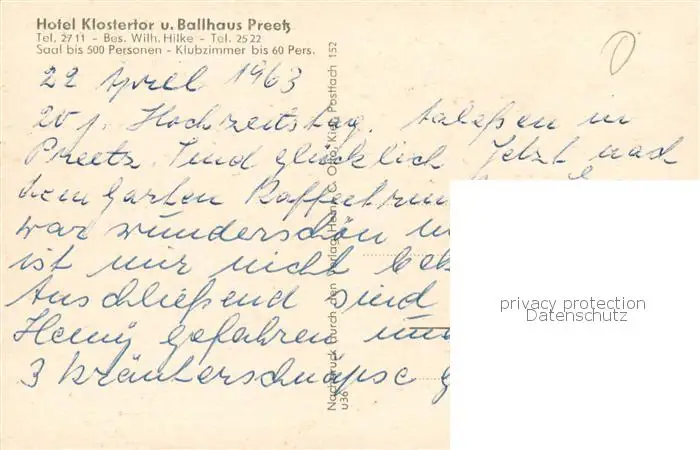 Hotel Klostertor u. Ballhaus Preetz
Tel. 27 11 - Bes. Wilh. Hilke - Tel. 25 22
Saal bis 500 Personen - Klubzimmer bis 60 Pers.
22 April 1963
20 j. Hochzeitstag. in
Preetz. Sind glücklich Jetzt nach
dem Garten Kaffeetrin
war wunderschön
ist mir nicht bek
Anschließend sind
gefahren
3 Kräuterschnäpse g
Nachdruck durch den Verlag Heinr. C. Otto, Kiel, Postfach 152
u36
privacy protection
Datenschutz